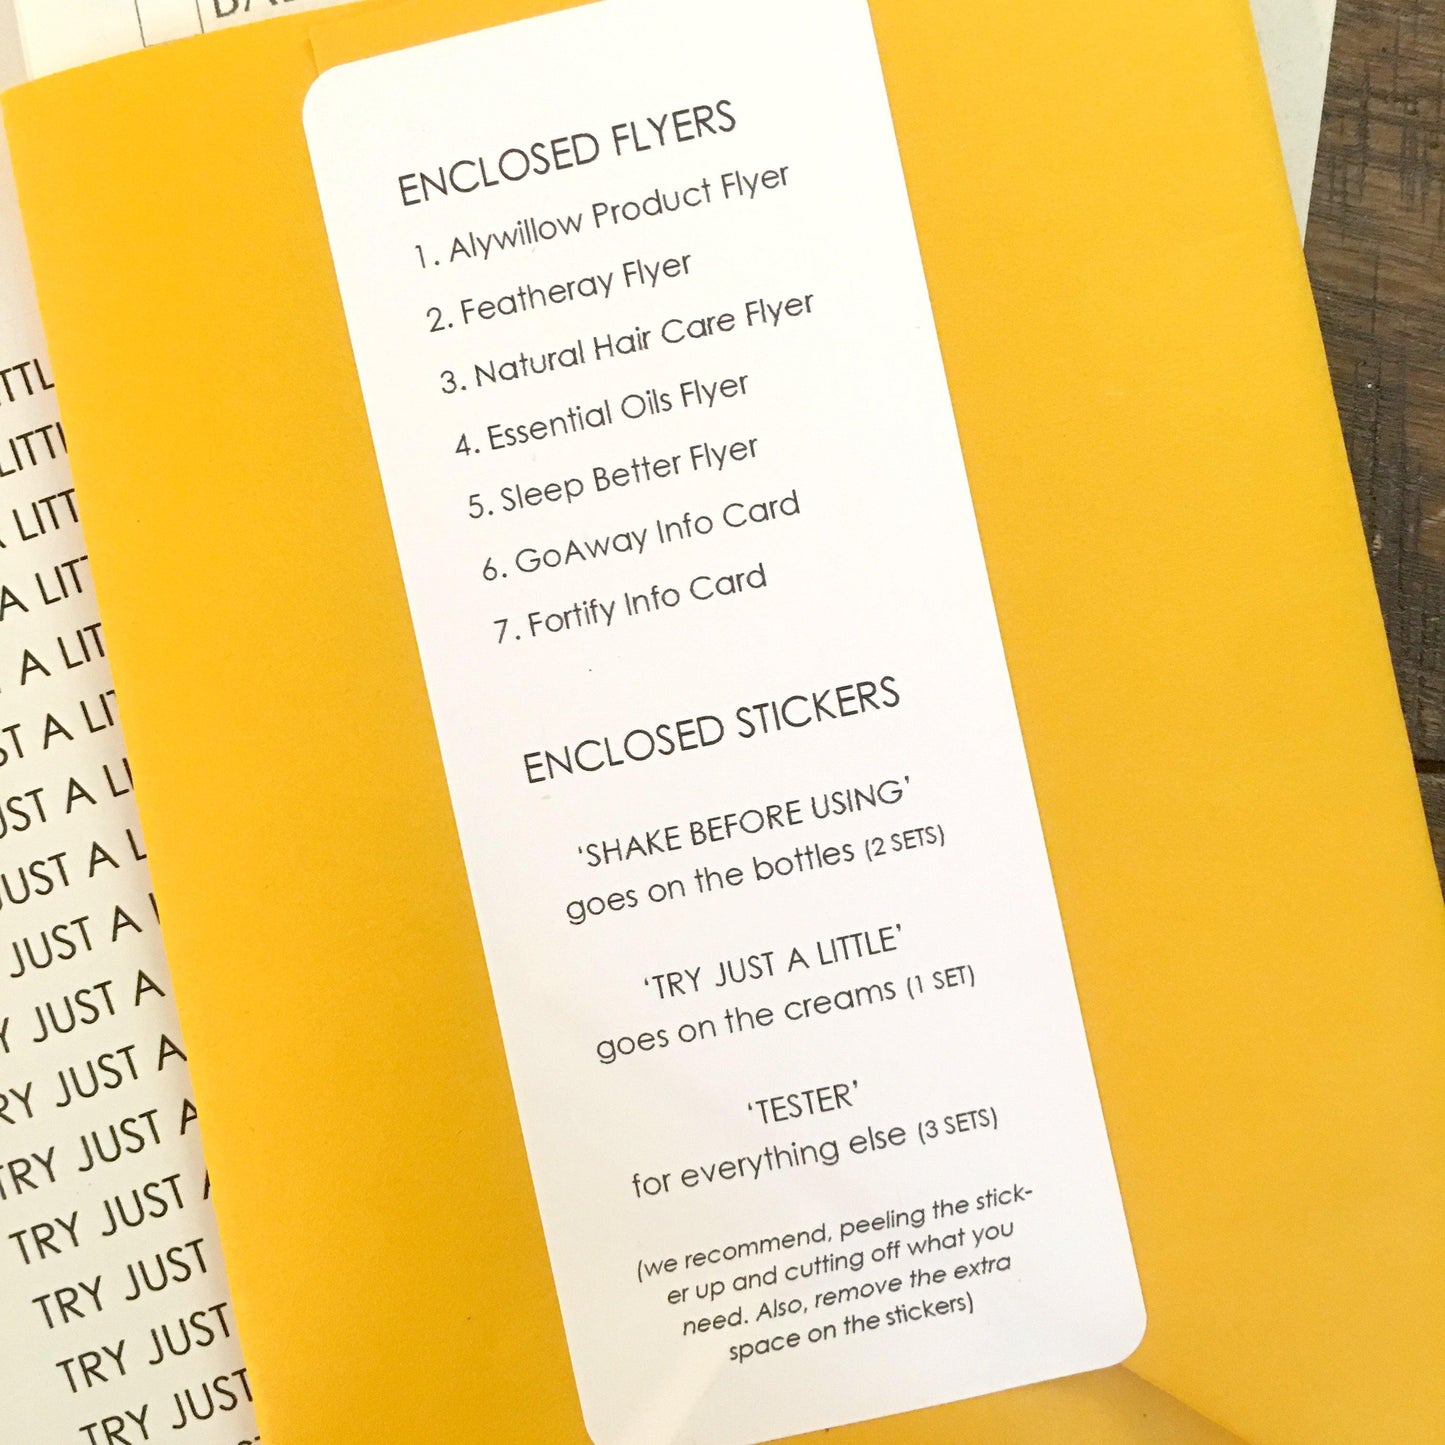 ENCLOSED FLYERS
1. Alywillow Product Flyer
2. Featheray Flyer
3. Natural Hair Care Flyer
4. Essential Oils Flyer
5. Sleep Better Flyer
6. GoAway Info Card
7. Fortify Info Card
ENCLOSED STICKERS
‘SHAKE BEFORE USING’
goes on the bottles (2 SETS)
‘TRY JUST A LITTLE’
goes on the creams (1 SET)
‘TESTER’
for everything else (3 SETS)
(we recommend, peeling the stick-
er up and cutting off what you
need. Also, remove the extra
space on the stickers)
A LITT
A LIT
A LIT
ST A LIT
UST A LI
JUST A L
JUST A
JUST A
RY JUST A
TRY JUST A
TRY JUST A
TRY JUST
TRY JUST
TRY JUST